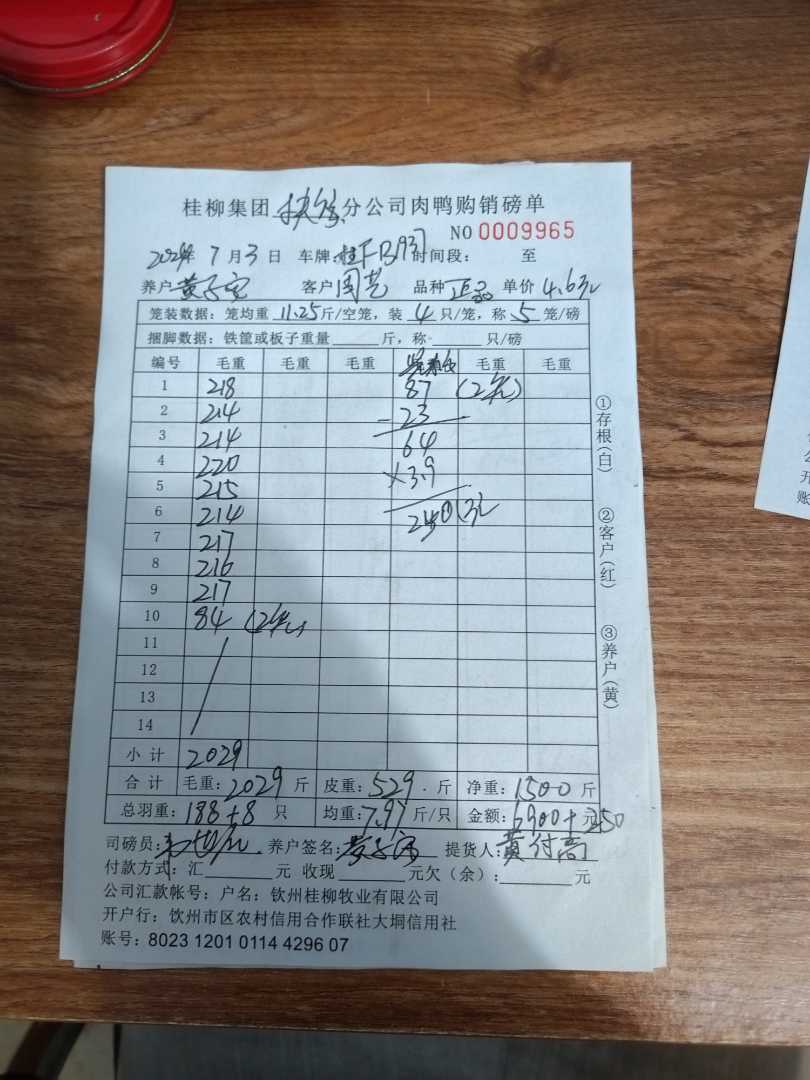 桂柳集团 分公司肉鸭购销磅单
NO 0009965
2024年 7月3日 车牌: 桂 B937 时间段: 至
养户 黄 客户 周 品种 正品 单价 4.6元
笼装数据: 笼均重 11.25 斤/空笼, 装 4 只/笼, 称 5 笼/磅
捆脚数据: 铁筐或板子重量 斤, 称 只/磅
编号 毛重 毛重 毛重 毛重 毛重
1 218 87 (2笼)
2 214 -23
3 214 64
4 220 ×3.9
5 215
6 214 250元
7 217
8 216
9 217
10 84 (2笼)
11
12
13
14
小计 2029
合计 毛重: 2029 斤 皮重: 529 斤 净重: 1500 斤
总羽重: 188+8 只 均重: 7.97 斤/只 金额: 6900+250 元
司磅员: 养户签名: 黄 提货人: 黄付高
付款方式: 汇 元 收现 元欠(余): 元
公司汇款帐号: 户名: 钦州桂柳牧业有限公司
开户行: 钦州市区农村信用合作联社大垌信用社
账号: 8023 1201 0114 4296 07
①存根(白)
②客户(红)
③养户(黄)